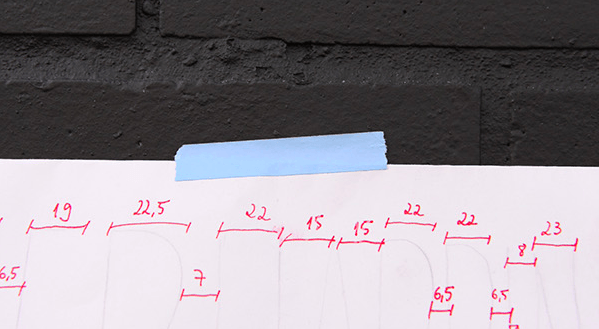 19 22,5 22 15 15 22 22 23
6,5 7 6,5 6,5 8